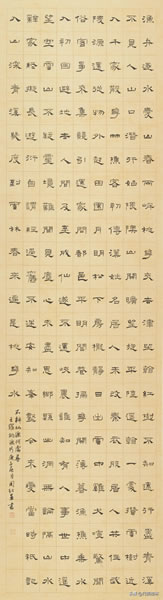 漁舟逐水愛山春兩岸桃花夾古津坐看紅樹不知遠行盡青溪
不見人山口潛行始隈隩山開曠望旋平陸遙看一處攢雲樹近
入千家散花竹樵客初傳漢姓名居人未改秦衣服居人共住武
陵源還從物外起田園月明松下房櫳靜日出雲中雞犬喧驚聞
俗客爭來集競引還家問都邑平明閭巷掃花開薄暮漁樵乘水
入初因避地去人間及至成仙遂不還峽裏誰知有人事世中
辭家終擬長遊衍自謂經過舊不迷安知峰壑今來變當時祇記
入山深青溪幾度到雲林春來遍是桃花水
不辨仙源何處尋
王維桃源行